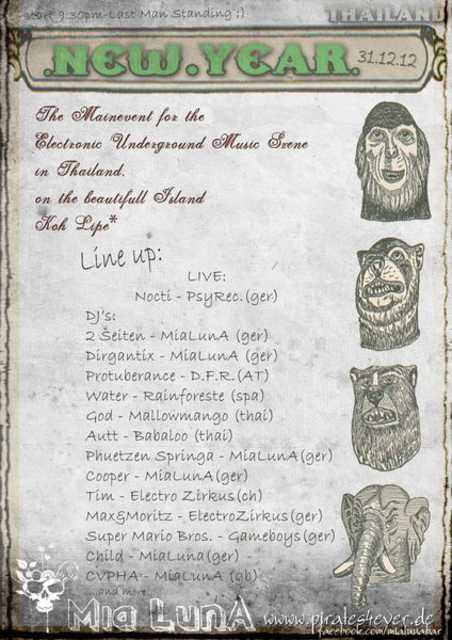 start 9:30pm-Last Man Standing :)
THAILAND
.NEW.YEAR.
31.12.12
The Mainevent for the
Electronic Underground Music Szene
in Thailand.
on the beautifull Island
Koh Lipe*
Line up:
LIVE:
Nocti - PsyRec.(ger)
DJ's:
2 Seiten - MiaLunA (ger)
Dirgantix - MiaLunA (ger)
Protuberance - D.F.R.(AT)
Water - Rainforeste (spa)
God - Mallowmango (thai)
Autt - Babaloo (thai)
Phuetzen Springa - MiaLunA(ger)
Cooper - MiaLunA(ger)
Tim - Electro Zirkus(ch)
Max&Moritz - ElectroZirkus(ger)
Super Mario Bros. - Gameboys(ger)
Child - MiaLuna(ger)
CVPHA - MiaLunA (gb)
....and more
Mia LunA
www.pirates4ever.de